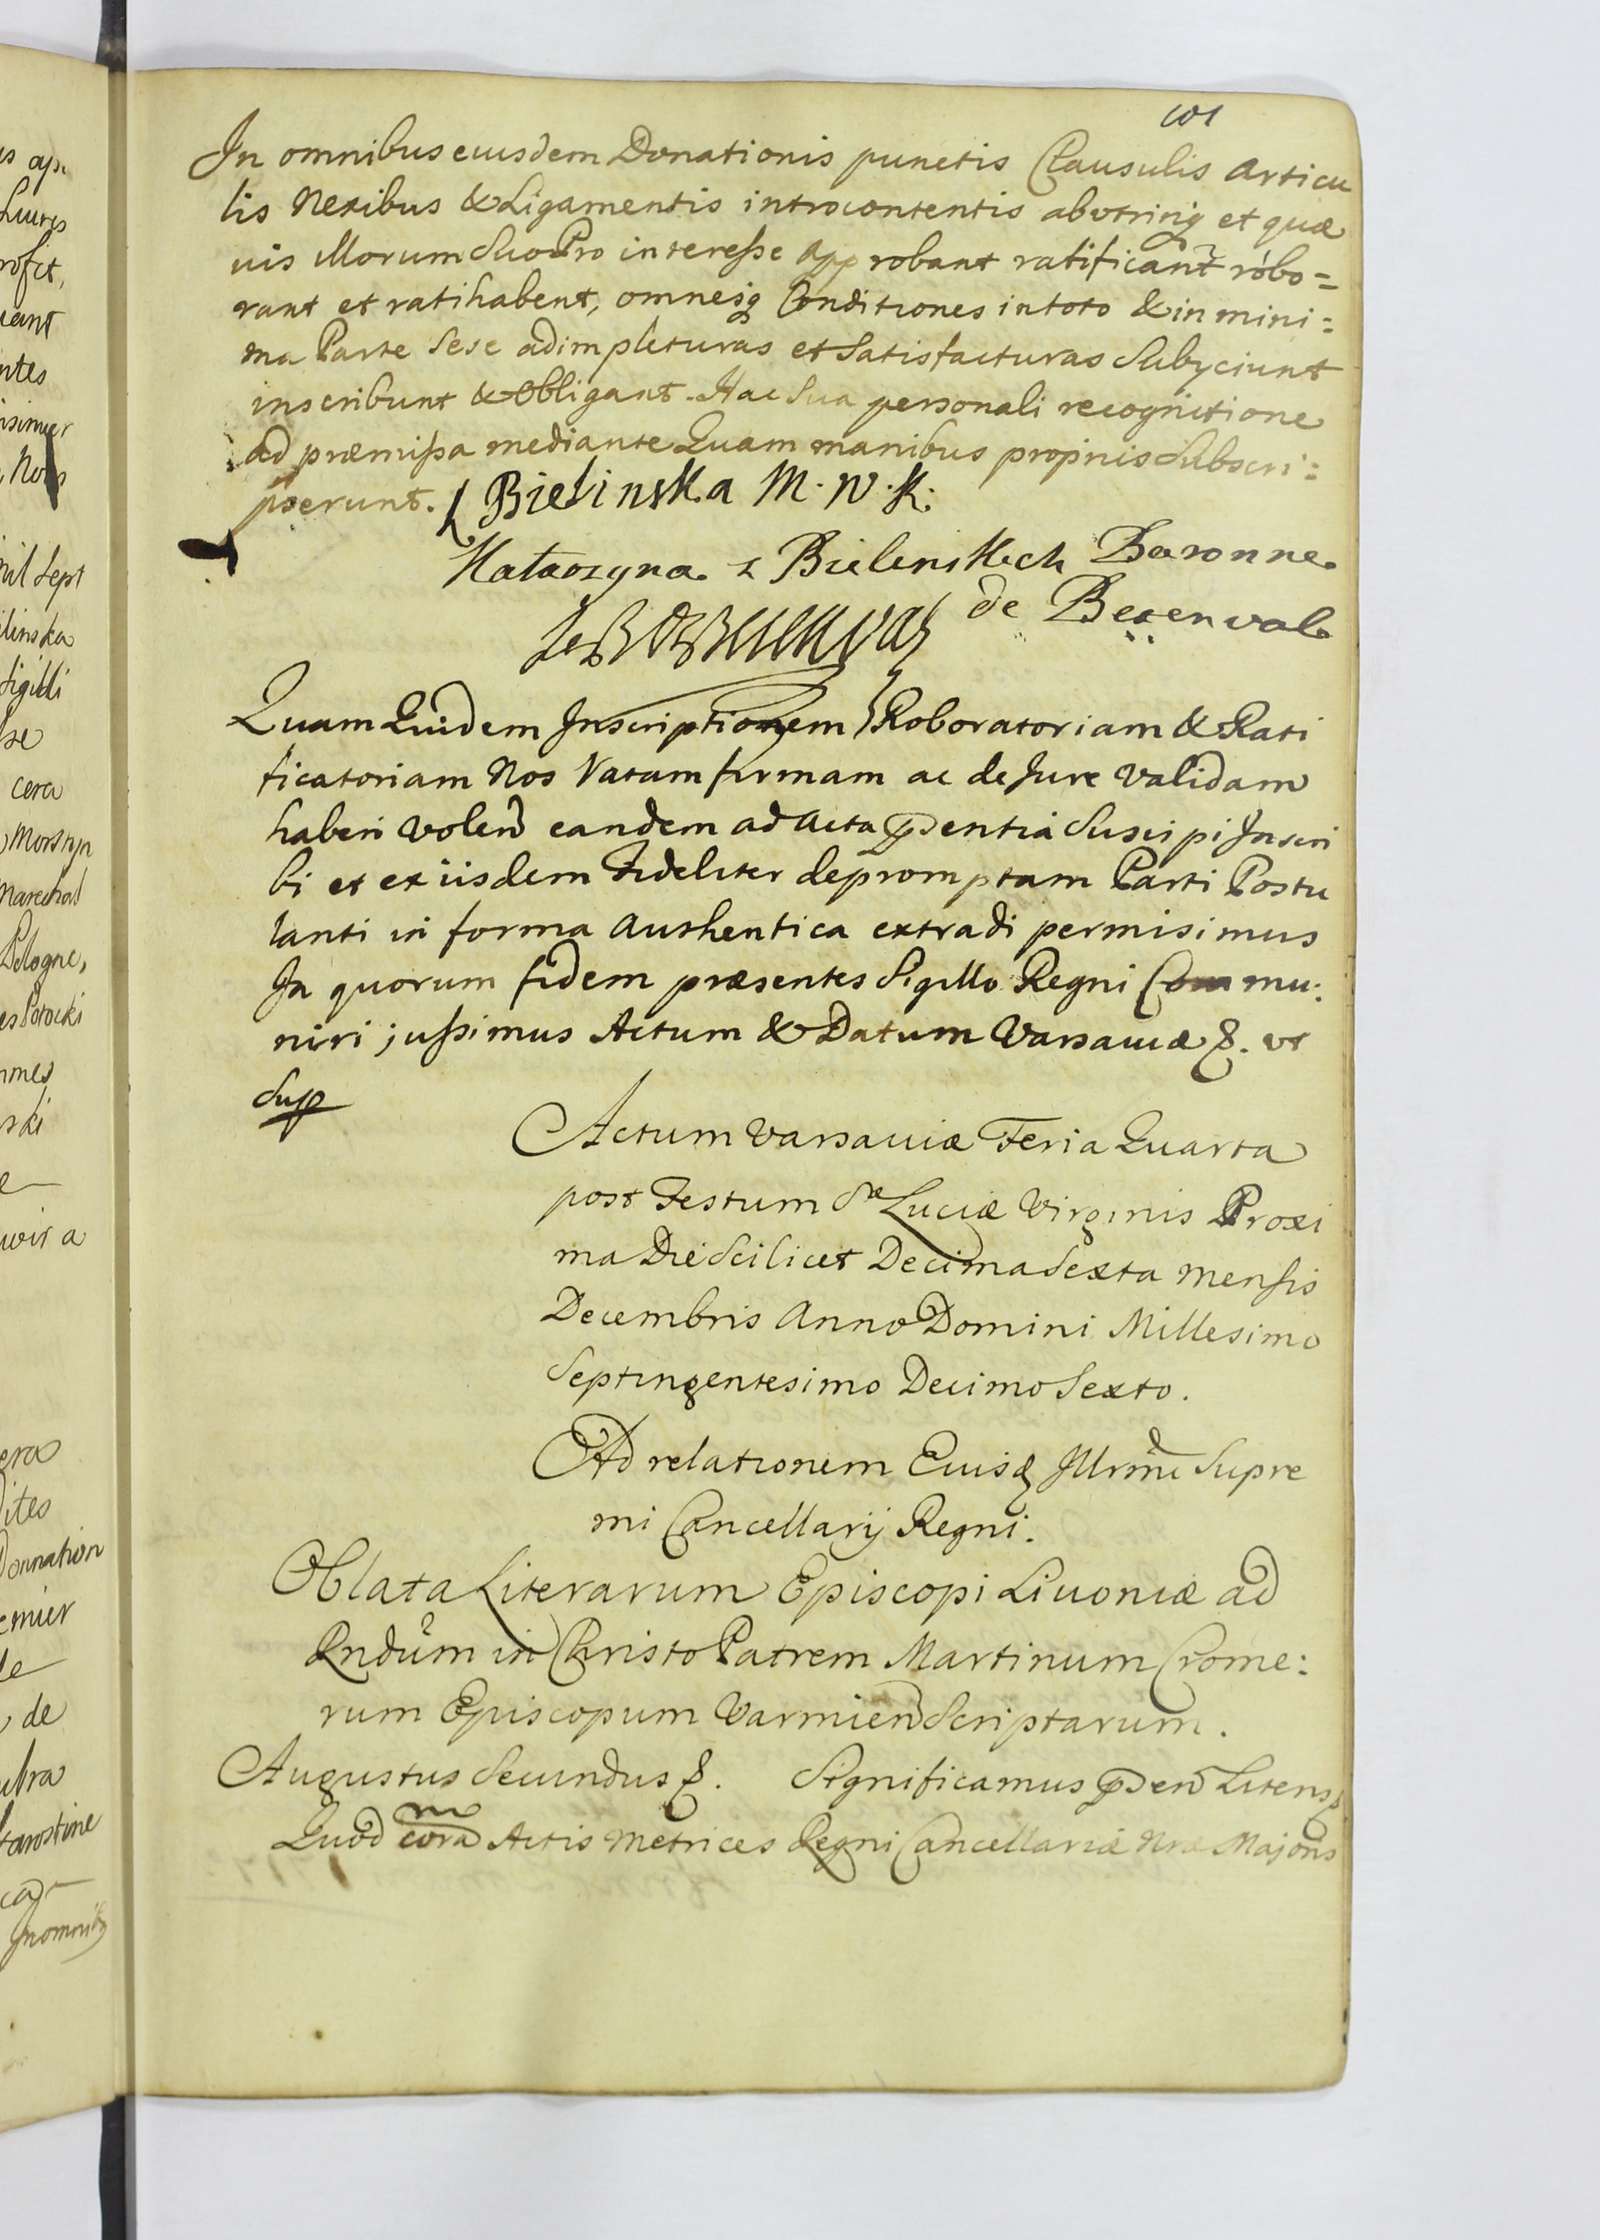 101
In omnibus eiusdem Donationis punctis Clausulis Articu
lis Nexibus & Ligamentis introcontentis ab utrinq et quæ
uis Illorum Suo Pro interesse Approbant ratificant robo=
rant et ratihabent, omnesq Conditiones in toto & in mini:
ma Parte Sese adimpleturas et Satisfacturas Subyciunt
inscribunt & Obligant. Hac Sua personali recognitione
ad præmissa mediante Quam manibus proprijs Subscri:
pserunt. Bielinska M. W. K.
Katarzyna z Bielenskich Baronne
de Besenval
Quam Quidem Inscriptionem Roboratoriam & Rati
ficatoriam Nos Ratam firmam ac de Jure Validam
haberi volen eandem ad Acta pñdentia Suscipi Inscri
bi et ex iisdem Fideliter depromptam Parti Postu
lanti in forma Authentica extradi permisimus
In quorum fidem præsentes Sigillo Regni Com mu:
niri jussimus Actum & Datum Varsaviæ &. ut
Sup
Actum Varsauiæ Feria Quarta
post Festum Sæ Luciæ Virginis Proxi
ma Die Scilicet Decima Sexta Mensis
Decembris Anno Domini Millesimo
Septingentesimo Decimo Sexto.
Ad relationem Eiusd Illrmi Supre
mi Cancellarij Regni.
Oblata Literarum Episcopi Liuoniæ ad
Rndum in Christo Patrem Martinum Crome:
rum Episcopum Varmien Scriptarum.
Augustus Secundus &. Significamus pden Literis
Quod cora Actis Metrices Regni Cancellariæ Nræ Majoris